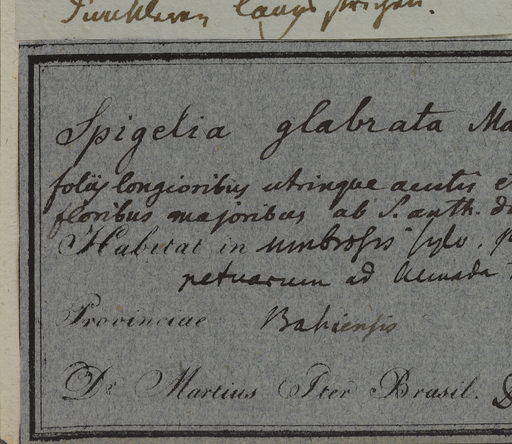 Funkleren langs striger.
Spigelia glabrata Ma
foliis longioribus utrinque acutis et
floribus majoribus ab S. anth. di
Habitat in umbrosis sylv. p
petuarum ad Almada
Provinciae Bahiensis
Dr Martius Iter Brasil. D